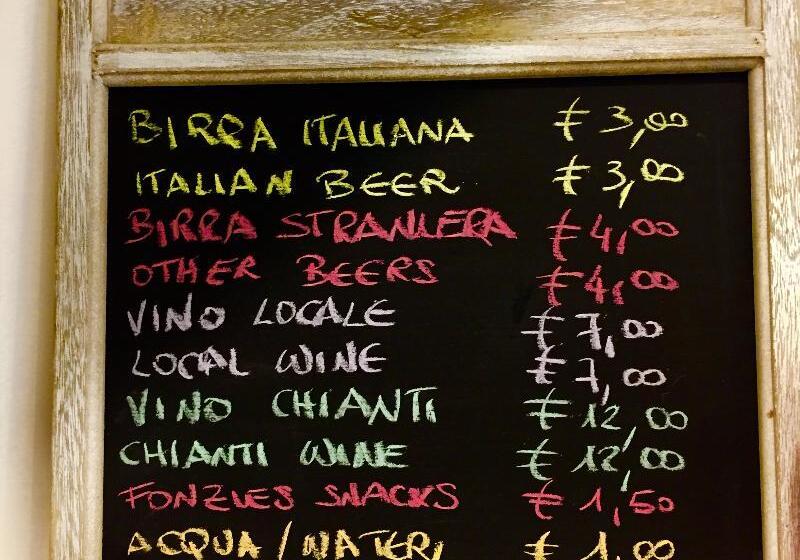 BIRRA ITALIANA € 3,00
ITALIAN BEER € 3,00
BIRRA STRANIERA € 4,00
OTHER BEERS € 4,00
VINO LOCALE € 7,00
LOCAL WINE € 7,00
VINO CHIANTI € 12,00
CHIANTI WINE € 12,00
FONZIES SNACKS € 1,50
ACQUA / WATER, € 1,00